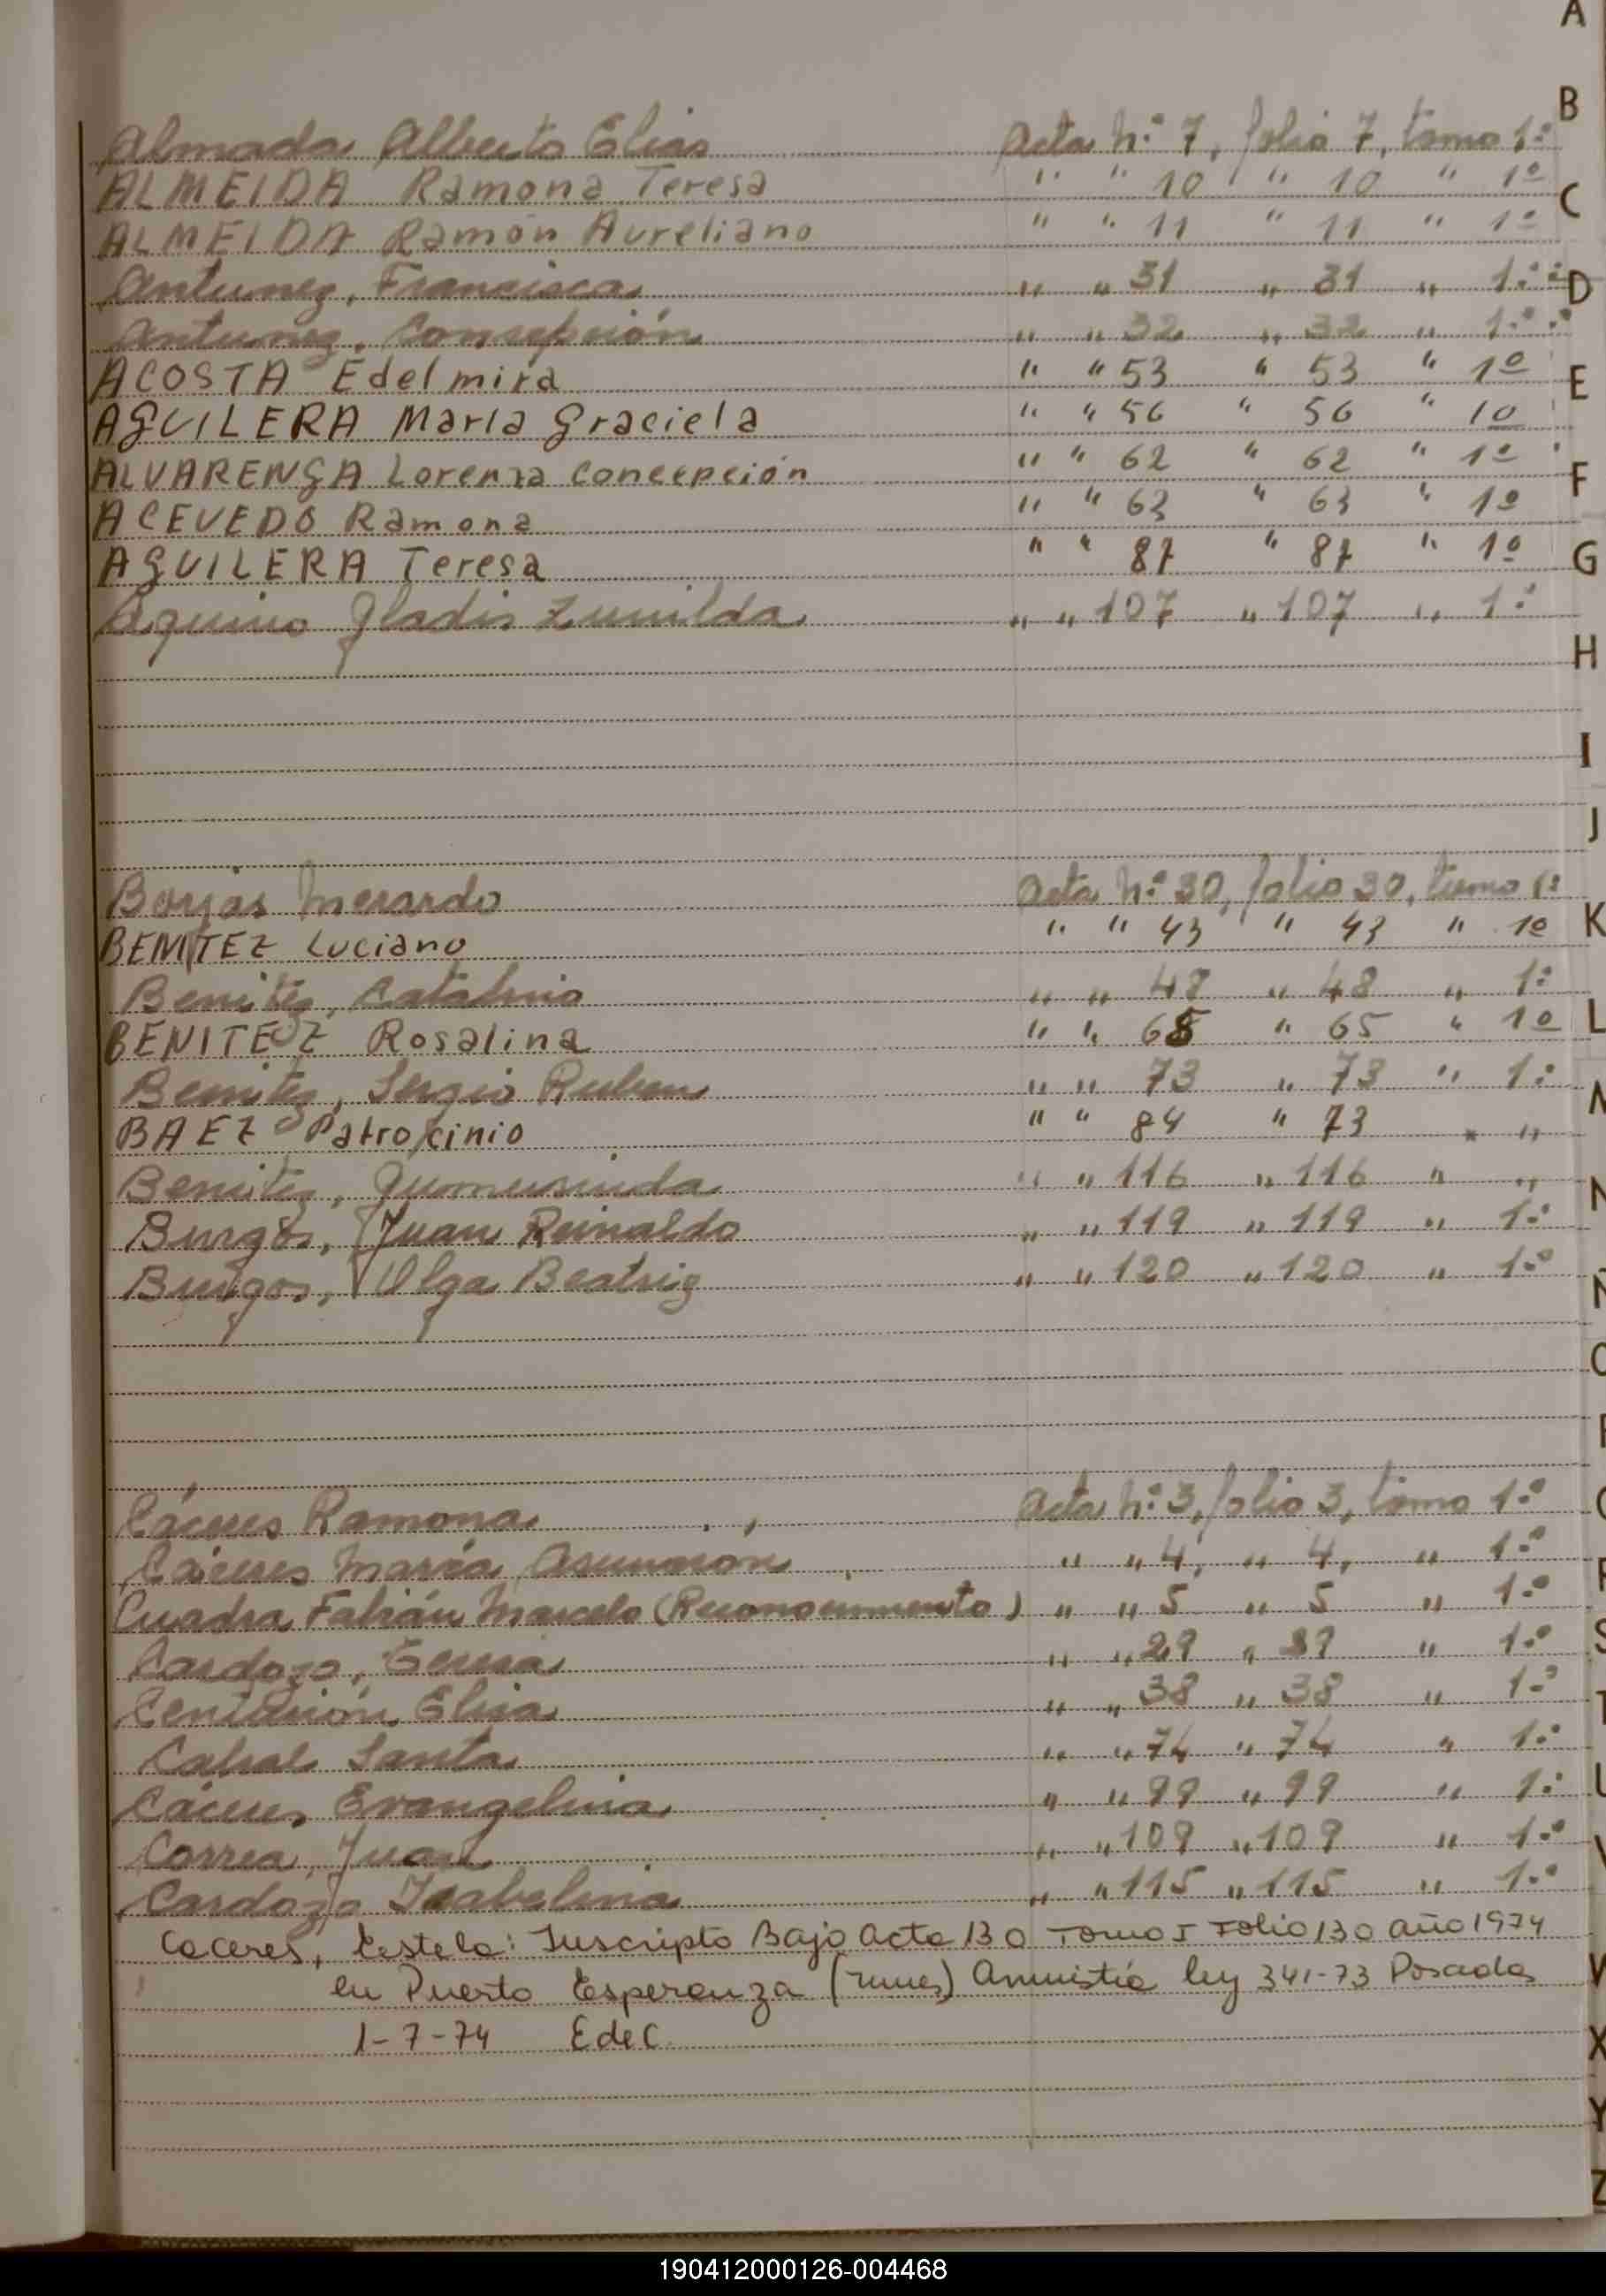 A
B
Almada Alberto Elias Acta N.º 7, folio 7, tomo 1.º
ALMEIDA Ramona Teresa " " 10 " 10 " 1º
C
ALMEIDA Ramón Aureliano " " 11 " 11 " 1º
Antunez, Francisca " " 31 " 31 " 1.º
D
Antunez, Consepsión " " 32 " 32 " 1.º
ACOSTA Edelmira " " 53 " 53 " 1º
E
AGUILERA María Graciela " " 56 " 56 " 1º
ALVARENGA Lorenza Concepción " " 62 " 62 " 1º
F
ACEVEDO Ramona " " 63 " 63 " 1º
AGUILERA Teresa " " 87 " 87 " 1º
G
Aquino Gladis Zunilda " " 107 " 107 " 1.º
H
I
J
Borjas Merardo Acta N.º 30, folio 30, tomo 1.º
K
BENITEZ Luciano " " 43 " 43 " 1º
Benitez, Catalina " " 48 " 48 " 1.º
BENITEZ Rosalina " " 65 " 65 " 1º
L
Benitez, Sergio Ruben " " 73 " 73 " 1.º
BAEZ Patrocinio " " 84 " 73 " "
Benitez, Gumersinda " " 116 " 116 " "
N
Burgos, Juan Reinaldo " " 119 " 119 " 1.º
Burgos, Olga Beatriz " " 120 " 120 " 1.º
Cáceres Ramona Acta N.º 3, folio 3, tomo 1.º
Cáceres María Asunsión " " 4, " 4, " 1.º
Cuadra Fabián Marcelo (Reconocimiento) " " 5 " 5 " 1.º
Cardozo, " " 29 " 39 " 1.º
Centurión, Elisa " " 38 " 38 " 1.º
Cabral Santa " " 74 " 74 " 1.º
Cáceres, Evangelina " " 99 " 99 " 1.º
Correa, Juan " " 109 " 109 " 1.º
Cardozo Isabelina " " 115 " 115 " 1.º
Caceres, Estela: Inscripto Bajo Acta 130 Tomo I Folio 130 año 1974
en Puerto Esperanza (mnes) Amnistía ley 341-73 Posadas
1-7-74 EdeC.
X
Y
Z
190412000126-004468